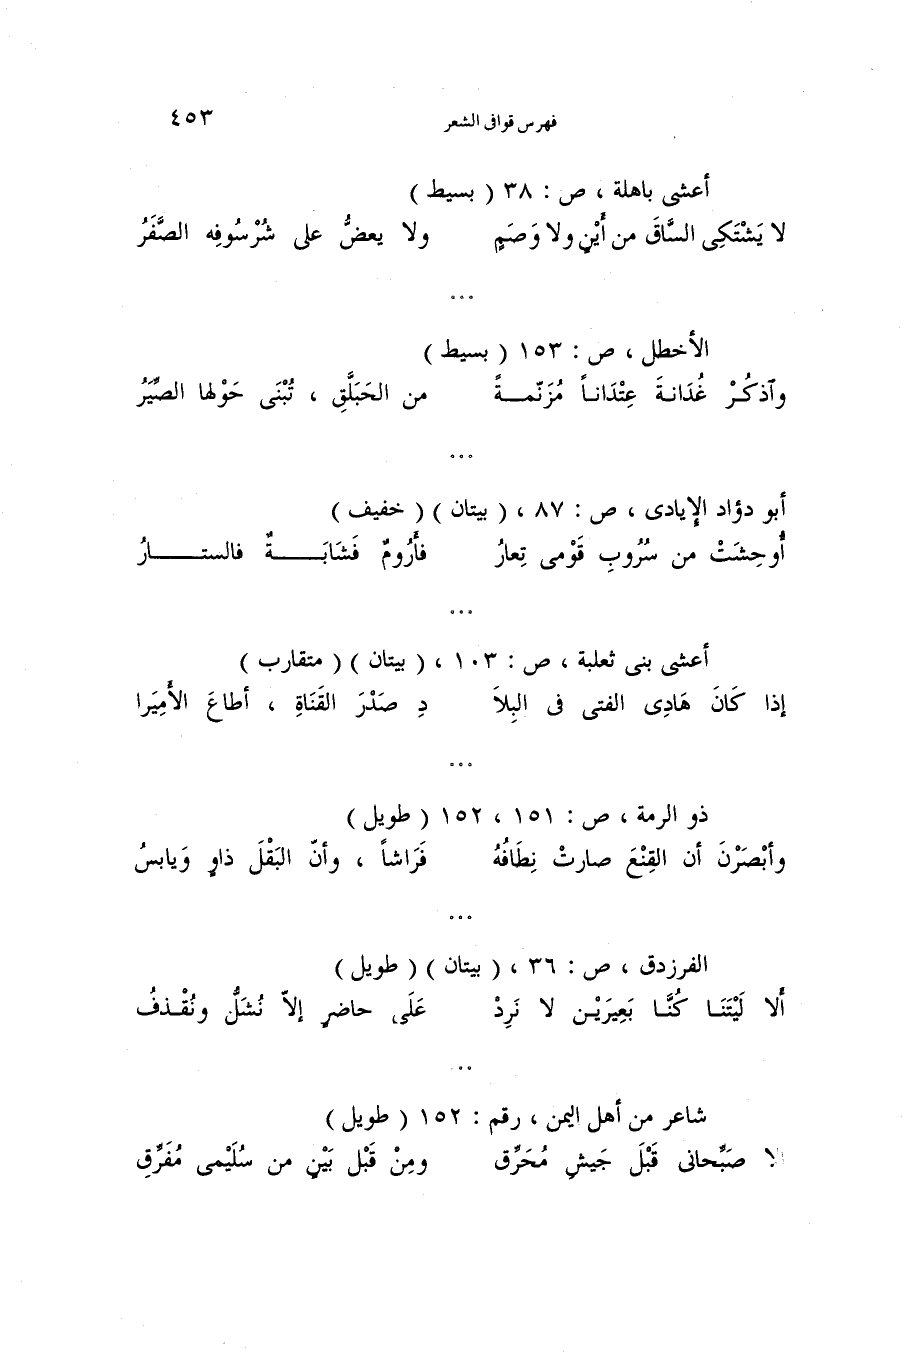 فهرس قوافى الشعر ٤٥٣
أعشى باهلة ، ص : ٣٨ ( بسيط )
لا يَشْتَكِى السَّاقَ من أَيْنٍ ولا وَصَمٍ ولا يعضُّ على شُرْسُوفِه الصَّفَرُ
°°°
الأخطل ، ص : ١٥٣ ( بسيط )
وآذكُرْ غُدَانةَ عِتْدَاناً مُزَنّمةً من الحَبَلَّقِ ، تُبْنَى حَوْلها الصِّيَرُ
°°°
أبو دؤاد الإيادى ، ص : ٨٧ ، ( بيتان ) ( خفيف )
أُوحِشَتْ من سُرُوبِ قَوْمى تِعارُ فأَرُومٌ فَشَابَةٌ فالستارُ
°°°
أعشى بنى ثعلبة ، ص : ١٠٣ ، ( بيتان ) ( متقارب )
إذا كَانَ هَادِى الفتى فى البِلاَ دِ صَدْرَ القَنَاةِ ، أطاعَ الأَمِيَرا
°°°
ذو الرمة ، ص : ١٥١ ، ١٥٢ ( طويل )
وأبْصَرْنَ أن القِنْعَ صارتْ نِطَافُهُ فَرَاشاً ، وأنّ البَقْلَ ذاوٍ وَيابسُ
°°°
الفرزدق ، ص : ٣٦ ، ( بيتان ) ( طويل )
أَلا لَيْتَنَا كُنَّا بَعِيرَيْن لا نَرِدْ عَلَى حاضرٍ إلاّ نُشَلُّ ونُقْذفُ
°°
شاعر من أهل اليمن ، رقم : ١٥٢ ( طويل )
ألا صَبِّحانى قَبْلَ جَيشِ مُحَرِّق ومِنْ قَبْل بَيْنٍ من سُلَيْمى مُفَرِّقِ